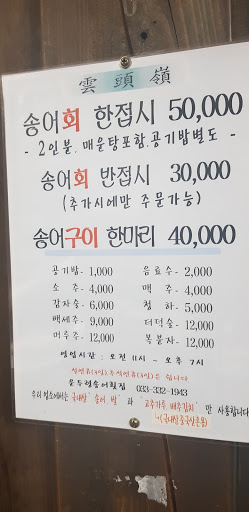 雲頭嶺
송어회 한접시 50,000
- 2인분, 매운탕포함, 공기밥별도 -
송어회 반접시 30,000
(추가시에만 주문가능)
송어구이 한마리 40,000
공기밥- 1,000 음료수- 2,000
소 주- 4,000 맥 주- 4,000
감자술- 6,000 청 하- 5,000
백세주- 9,000 더덕술- 12,000
머루주- 12,000 복분자- 12,000
영업시간 : 오전 11시 ~ 오후 7시
운두령송어횟집 033-332-1943
우리 업소에서는 국내산 송어 쌀 과 고추가루, 배추김치 만 사용합니다